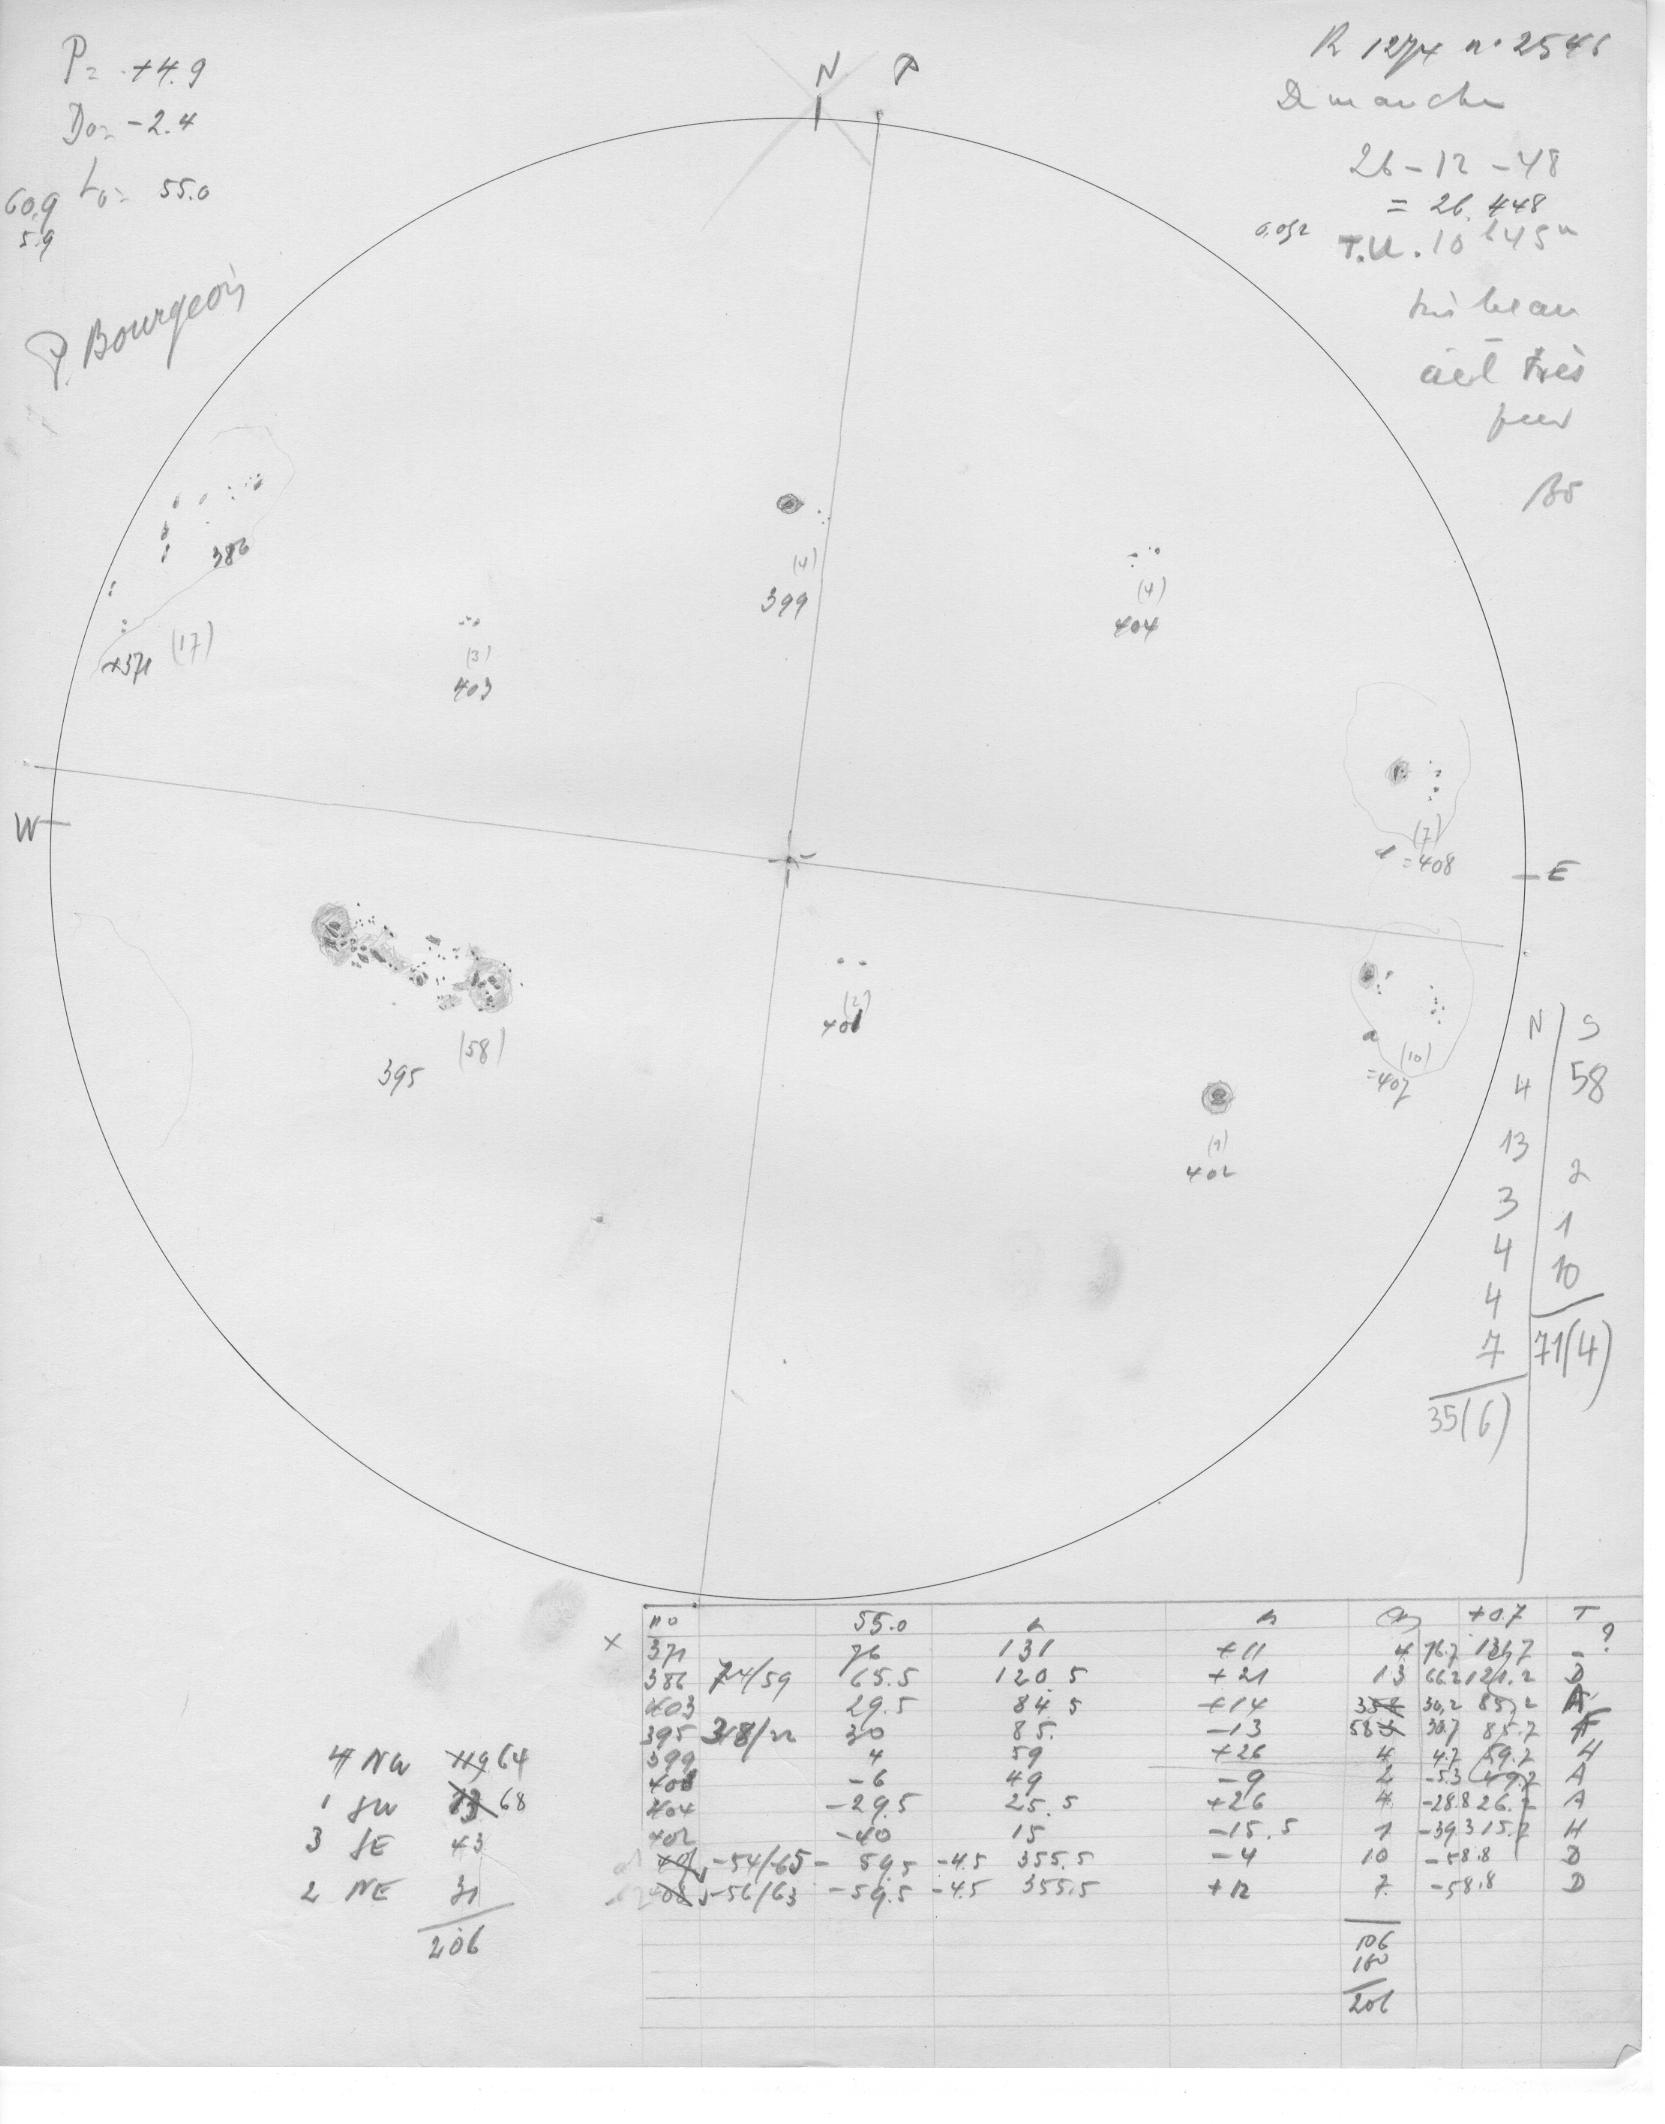 P= +4.9
Do= -2.4
Lo= 55.0
60.9
5.9
P. Bourgeois
N P
R 1274 n° 2546
Dimanche
26-12-48
= 26.448
T.U. 10h45m
très beau
ciel très
pur
W
E
386
371 (17)
(3)
403
(4)
399
(4)
404
(7)
=408
395 (58)
(2)
401
(10)
=407
(1)
402
N S
4 58
13
2
3
1
4
10
4
71(4)
7
35(6)
no 55.0 +0.7 T
371 76 131 +11 4 76.7 131.7 - ?
386 74/59 65.5 120.5 +21 13 66.2 121.2 D
403 29.5 84.5 +14 3 30.2 85.2 A
395 38/22 30 85. -13 58 30.7 85.7 F
399 4 59 +26 4 4.7 59.7 H
401 -6 49 -9 2 -5.3 49.7 A
404 -29.5 25.5 +26 4 -28.8 26.2 A
402 -40 15 -15.5 1 -39.3 15.7 H
407 -54/-65 -59.5 -4.5 355.5 -4 10 -58.8 D
408 -56/63 -59.5 -4.5 355.5 +12 7 -58.8 D
106
100
206
4 NW 64
1 SW 68
3 SE 43
2 NE 31
206